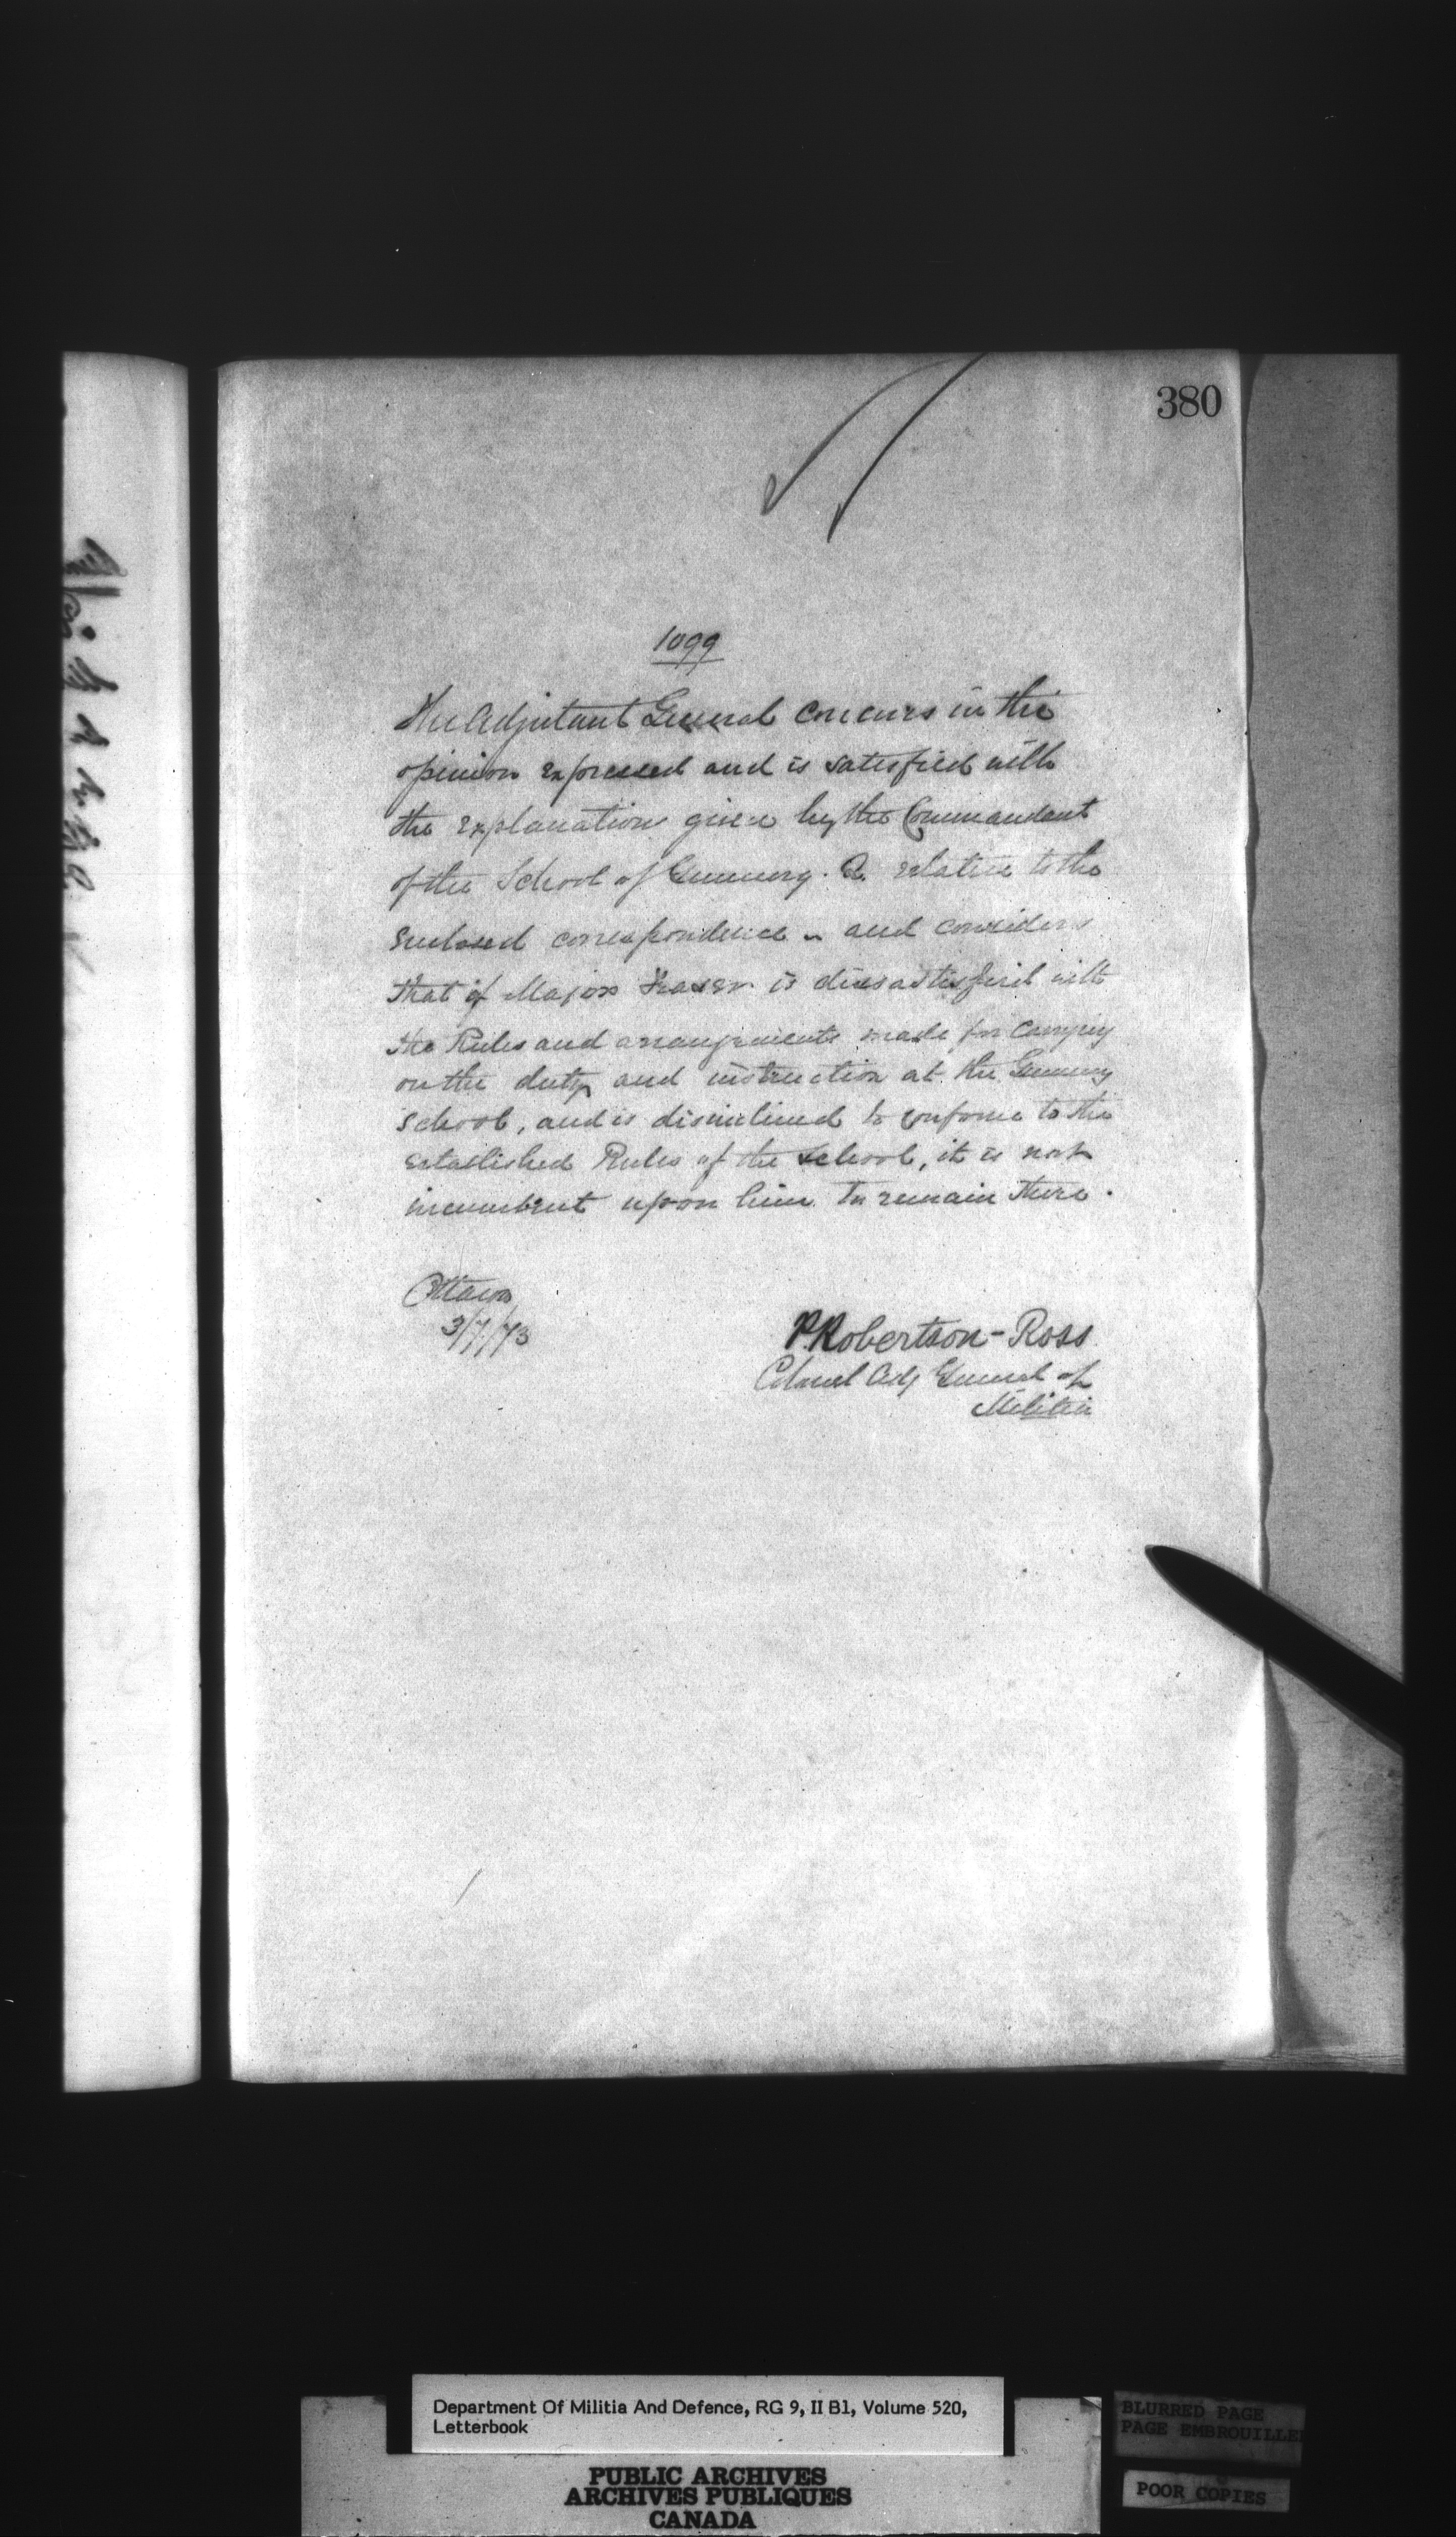 380
1099
The Adjutant General concurs in the
opinion expressed and is satisfied with
the explanation given by the Commandant
of the School of Gunnery. Q. relative to the
enclosed correspondence - and considers
that if Major Fraser is dissatisfied with
the Rules and arrangements made for carrying
on the duty and instruction at the Gunnery
School, and is disinclined to conform to the
established Rules of the School, it is not
incumbent upon him to remain there.
Ottawa
3/7/73
P. Robertson-Ross
Colonel Adj General of
Militia
Department Of Militia And Defence, RG 9, II B1, Volume 520,
Letterbook
BLURRED PAGE
PAGE EMBROUILLEE
PUBLIC ARCHIVES
ARCHIVES PUBLIQUES
CANADA
POOR COPIES